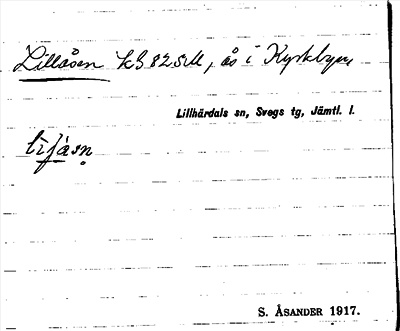 Lillåsen kB 82 SM, ås i Kyrkbyn,
Lillhärdals sn, Svegs tg, Jämtl. l.
S. ÅSANDER 1917.